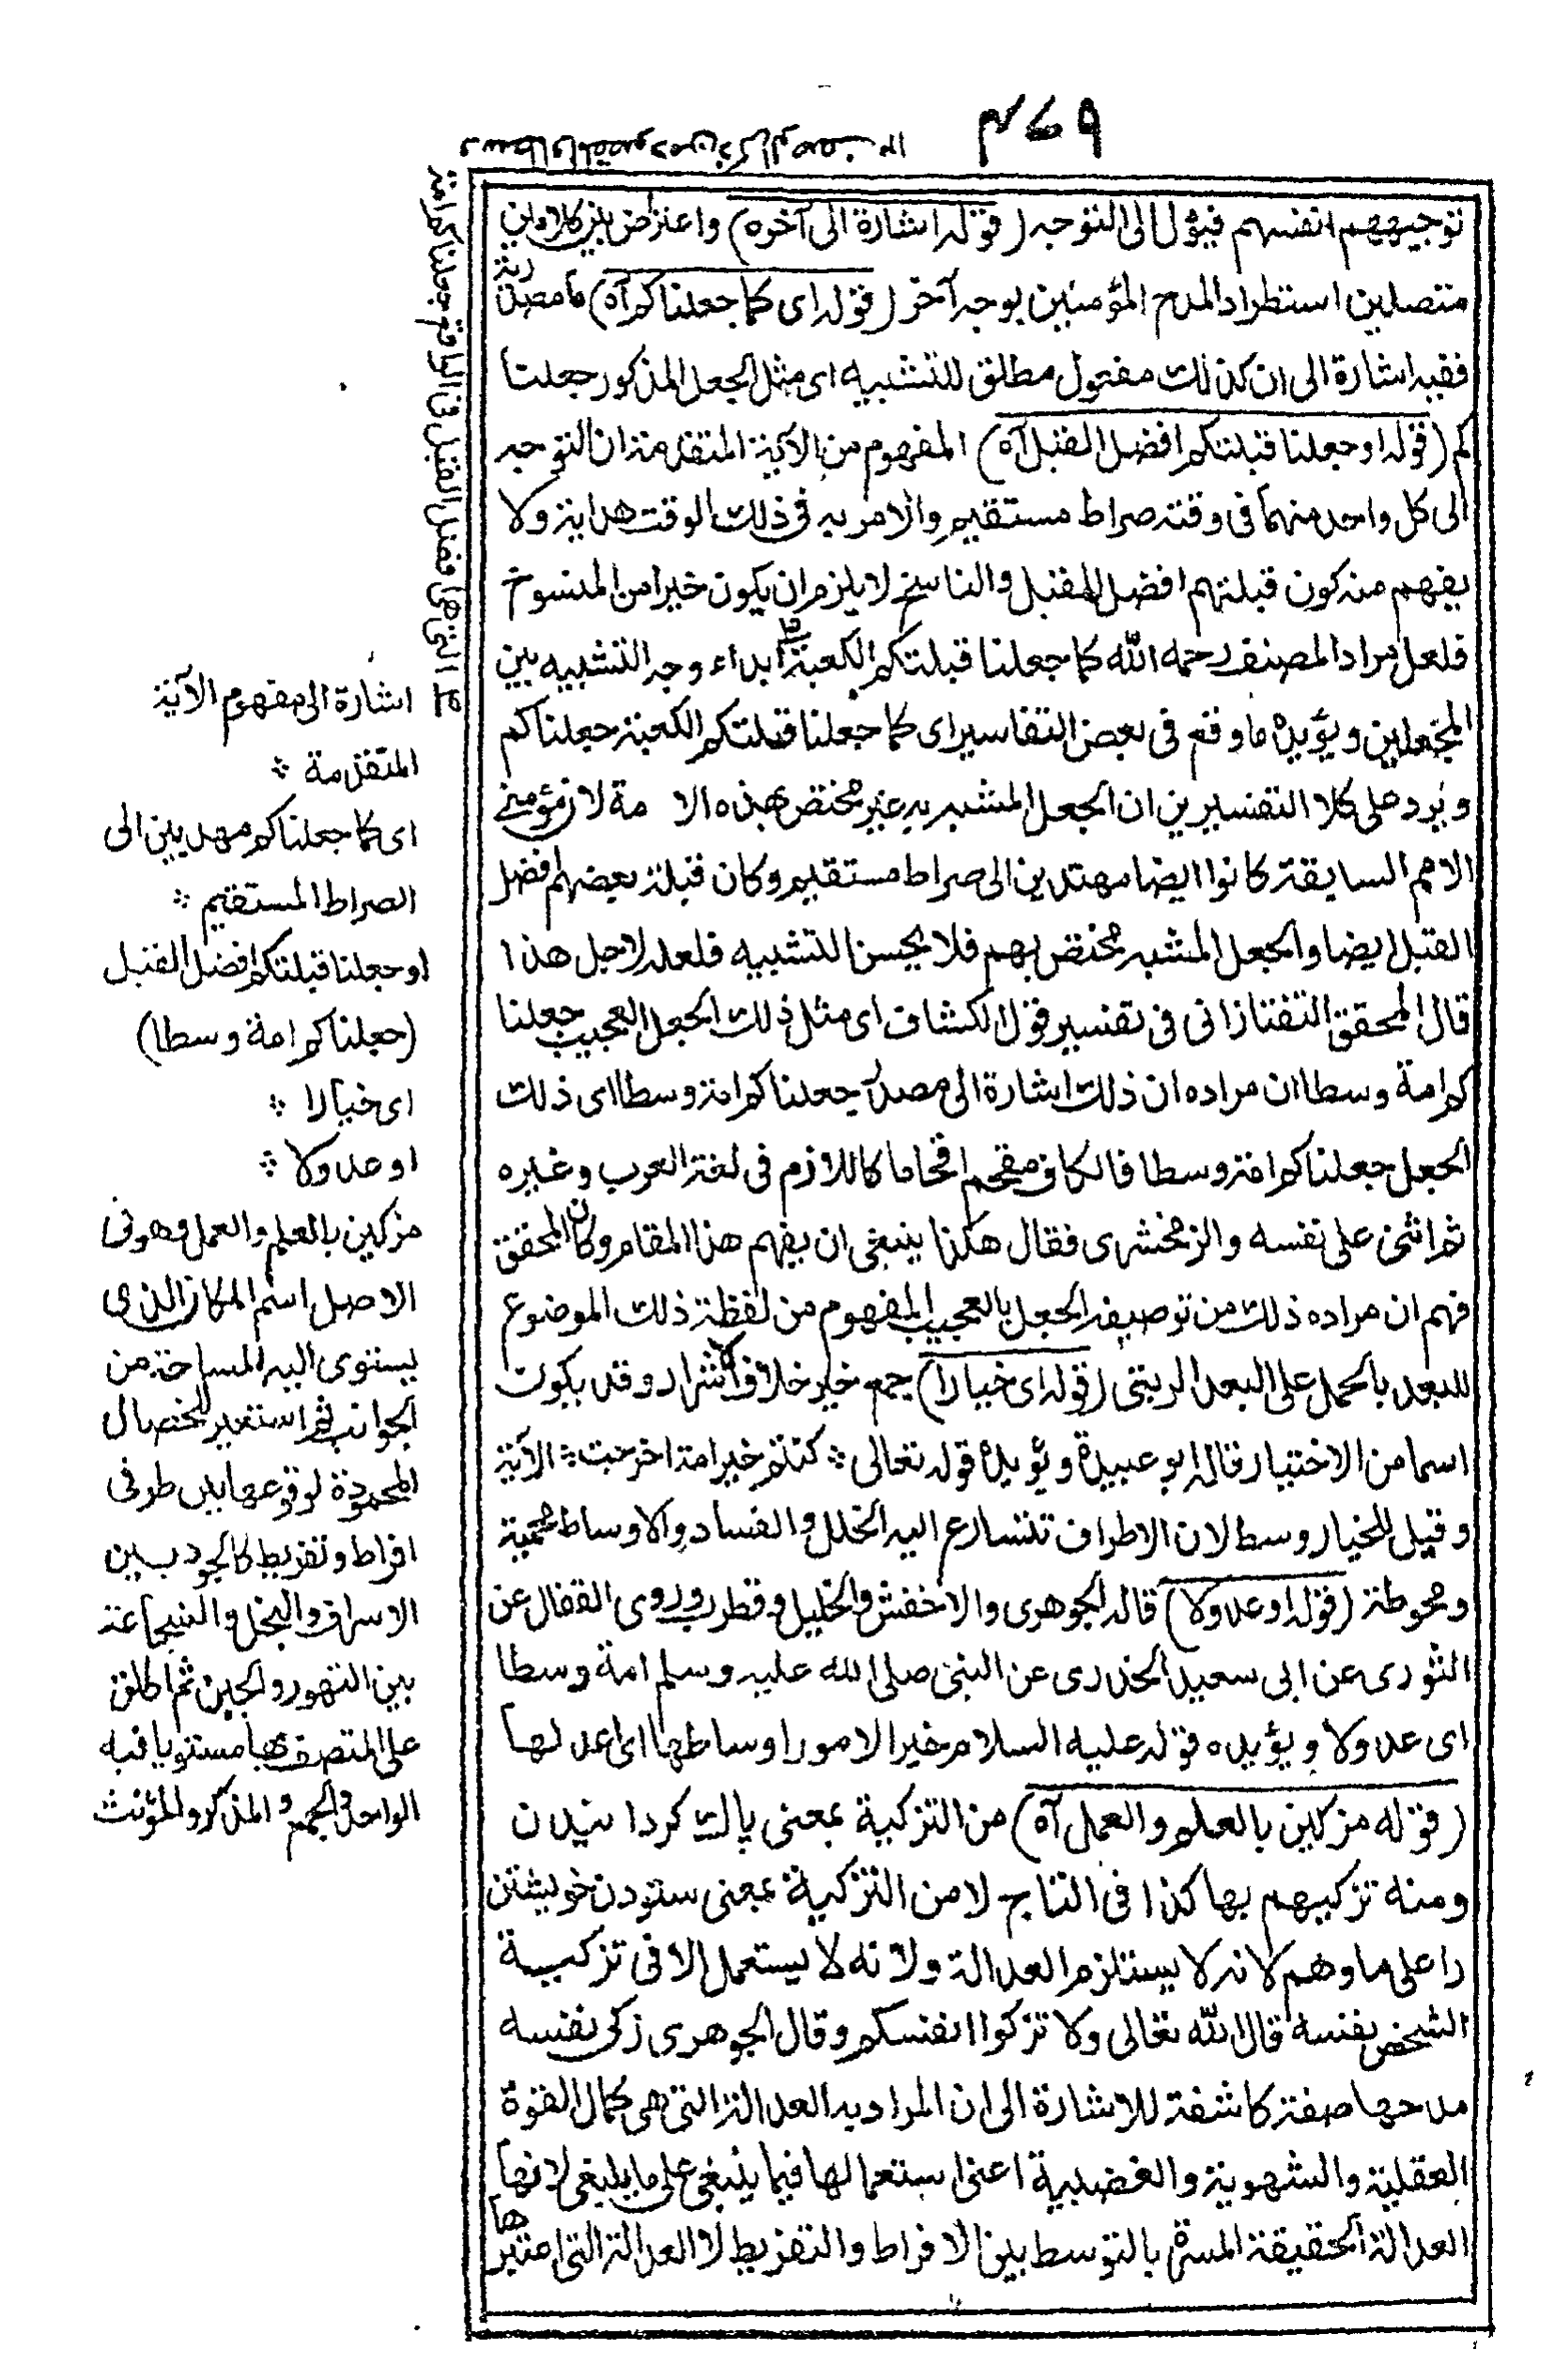 ٤٦٩
توجيههم انفسهم فيؤل الى التوجه (قوله اشارة الى آخره) واعتراض بين كلامين
متصلين استطراد المدح المؤمنين بوجه آخر (قوله اى كما جعلناكم آه) ما مصدرية
ففيه اشارة الى ان كذلك مفعول مطلق للتشبيه اى مثل الجعل المذكور جعلنا
كم (قوله او جعلنا قبلتكم افضل القبل آه) المفهوم من الآية المتقدمة ان التوجه
الى كل واحد منهما فى وقته صراط مستقيم والامر به فى ذلك الوقت هداية ولا
يفهم منه كون قبلتهم افضل القبل والناسخ لا يلزم ان يكون خيرا من المنسوخ
فلعل مراد المصنف رحمه الله كما جعلنا قبلتكم الكعبة ابداء وجه التشبيه بين
الجعلين ويؤيده ما وقع فى بعض التفاسير اى كما جعلنا قبلتكم الكعبة جعلناكم
ويرد على كلا التفسيرين ان الجعل المشبه به غير مختص بهذه الا مة لان مؤمنى
الامم السابقة كانوا ايضا مهتدين الى صراط مستقيم وكان قبلة بعضهم افضل
القبل ايضا والجعل المشبه مختص بهم فلا يحسن التشبيه فلعله لاجل هذا
قال المحقق التفتازانى فى تفسير قول الكشاف اى مثل ذلك الجعل العجيب جعلنا
كم امة وسطا ان مراده ان ذلك اشارة الى مصدر جعلناكم امة وسطا اى ذلك
الجعل جعلناكم امة وسطا فالكاف مقحم اقحاما كاللازم فى لغة العرب وغيره
ثم اثنى على نفسه والزمخشرى فقال هكذا ينبغى ان يفهم هذا المقام وكان المحقق
فهم ان مراده ذلك من توصيفه الجعل بالعجيب المفهوم من لفظة ذلك الموضوع
للبعد بالحمل على البعد الرتبى (قوله اى خيارا) جمع خير خلاف الاشرار وقد يكون
اسما من الاختيار قاله ابو عبيدة ويؤيده قوله تعالى ⁂ كنتم خير امة اخرجت ⁂ الآية
وقيل للخيار وسط لان الاطراف تتسارع اليه الخلل والفساد والاوساط محمية
ومحوطة (قوله او عدولا) قاله الجوهرى والاخفش والخليل وقطرب وروى القفال عن
الثورى عن ابى سعيد الخدرى عن النبى صلى الله عليه وسلم امة وسطا
اى عدولا ويؤيده قوله عليه السلام خير الامور اوساطها اى اعدلها
(قوله مزكين بالعلم والعمل آه) من التزكية بمعنى پاك كردا نيدن
ومنه تزكيهم بها كذا فى التاج لا من التزكية بمعنى ستودن خويشتن
را على ما وهم لانه لا يستلزم العدالة ولانه لا يستعمل الا فى تزكية
الشخص نفسه قال الله تعالى ولا تزكوا انفسكم وقال الجوهرى زكى نفسه
مدحها صفة كاشفة للاشارة الى ان المراد به العدالة التى هى كمال القوة
العقلية والشهوية والغضبية اعنى استعمالها فيما ينبغى على ما ينبغى لانها
العدالة الحقيقة المسمى بالتوسط بين الافراط والتفريط لا العدالة التى اعتبرها
اشارة الى مفهوم الآية
المتقدمة ⁂
اى كما جعلناكم مهديين الى
الصراط المستقيم ⁂
او جعلنا قبلتكم افضل القبل
(جعلناكم امة وسطا)
اى خيارا ⁂
او عدولا ⁂
مزكين بالعلم والعمل وهو فى
الاصل اسم المكان الذى
يستوى اليه المساحة من
الجوانب ثم استعير للخصال
المحمودة لوقوعها بين طرفى
افراط وتفريط كالجود بين
الاسراف والبخل والشجاعة
بين التهور والجبن ثم اطلق
على المتصف بها مستويا فيه
الواحد والجمع والمذكر والمؤنث
التى هى افضل القبل فى الواقع جعلناكم امة
وسطا والمقصود من ذكر الوصف ١٢